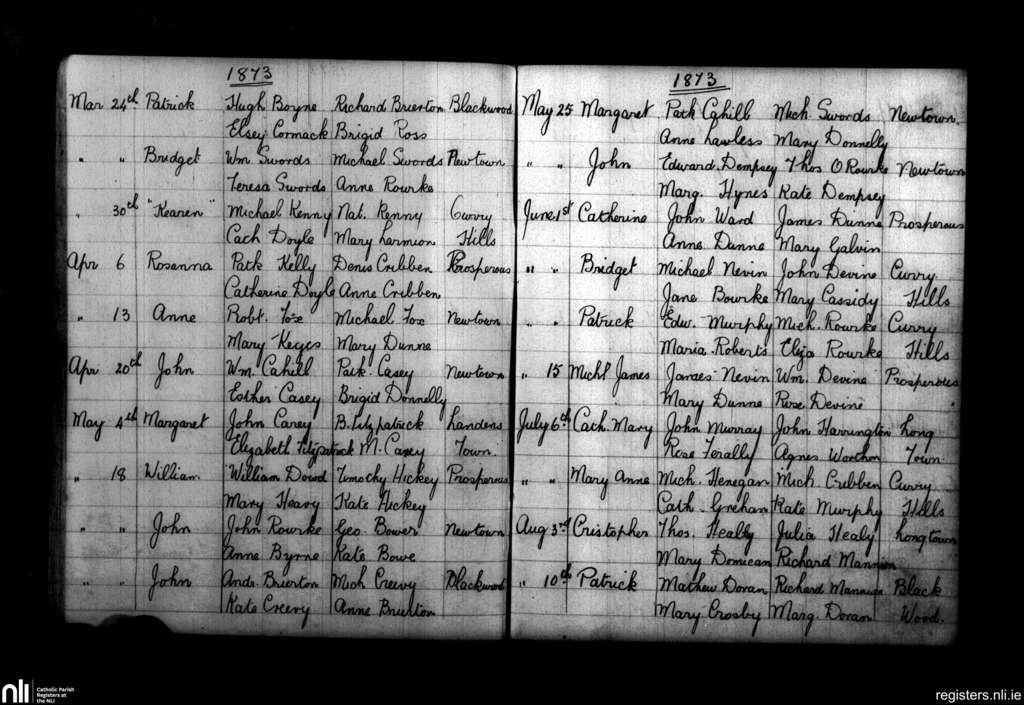 1873
Mar 24th Patrick Hugh Boyne Richard Brierton Blackwood
Elsey Cormack Brigid Ross
" " Bridget Wm. Swords Michael Swords Newtown
Teresa Swords Anne Rourke
" 30th "Kearen" Michael Kenny Nat. Kenny Curry
Cach Doyle Mary Larmion Hills
Apr 6 Rosanna Patk Kelly Denis Cribben Prosperous
Catherine Doyle Anne Cribben
" 13 Anne Robt. Fox Michael Fox Newtown
Mary Keyes Mary Dunne
Apr 20th John Wm. Cahill Patk. Casey Newtown
Esther Casey Brigid Donnelly
May 4th Margaret John Carey B. Fitzpatrick Landens
Elizabeth Fitzpatrick M. Casey Town.
" 18 William William Dowd Timothy Hickey Prosperous
Mary Heavy Kate Hickey
" " John John Rourke Geo. Bower Newtown
Anne Byrne Kate Bowe
" " John Andr. Brierton Mich Creevy Blackwood
Kate Creevy Anne Brierton
1873
May 25 Margaret Patk Cahill Mich. Swords Newtown.
Anne Lawless Mary Donnelly
" " John Edward. Dempsey Thos. O Rourke Newtown
Marg. Hynes Kate Dempsey
June 1st Catherine John Ward James Dunne Prosperous
Anne Dunne Mary Galvin
" " Bridget Michael Nevin John Devine Curry
Jane Bourke Mary Cassidy Hills
" " Patrick Edw. Murphy Mich. Rourke Curry
Maria. Roberts Eliza Rourke Hills
" 15 Michl James James Nevin Wm. Devine Prosperous
Mary Dunne Rose Devine
July 6th Cath. Mary John Murray John Harrington Long
Rose Ferally Agnes Town.
" " Mary Anne Mich. Henegan Mich. Cribben Curry
Cath. Grehan Kate Murphy Hills
Aug 3rd Cristopher Thos. Healy Julia Healy Longtown
Mary Donican Richard Mannion
" 10th Patrick Mathew Doran Richard Mannion Black
Mary Crosby Marg. Doran Wood.
nli Catholic Parish
Registers at
the NLI
registers.nli.ie